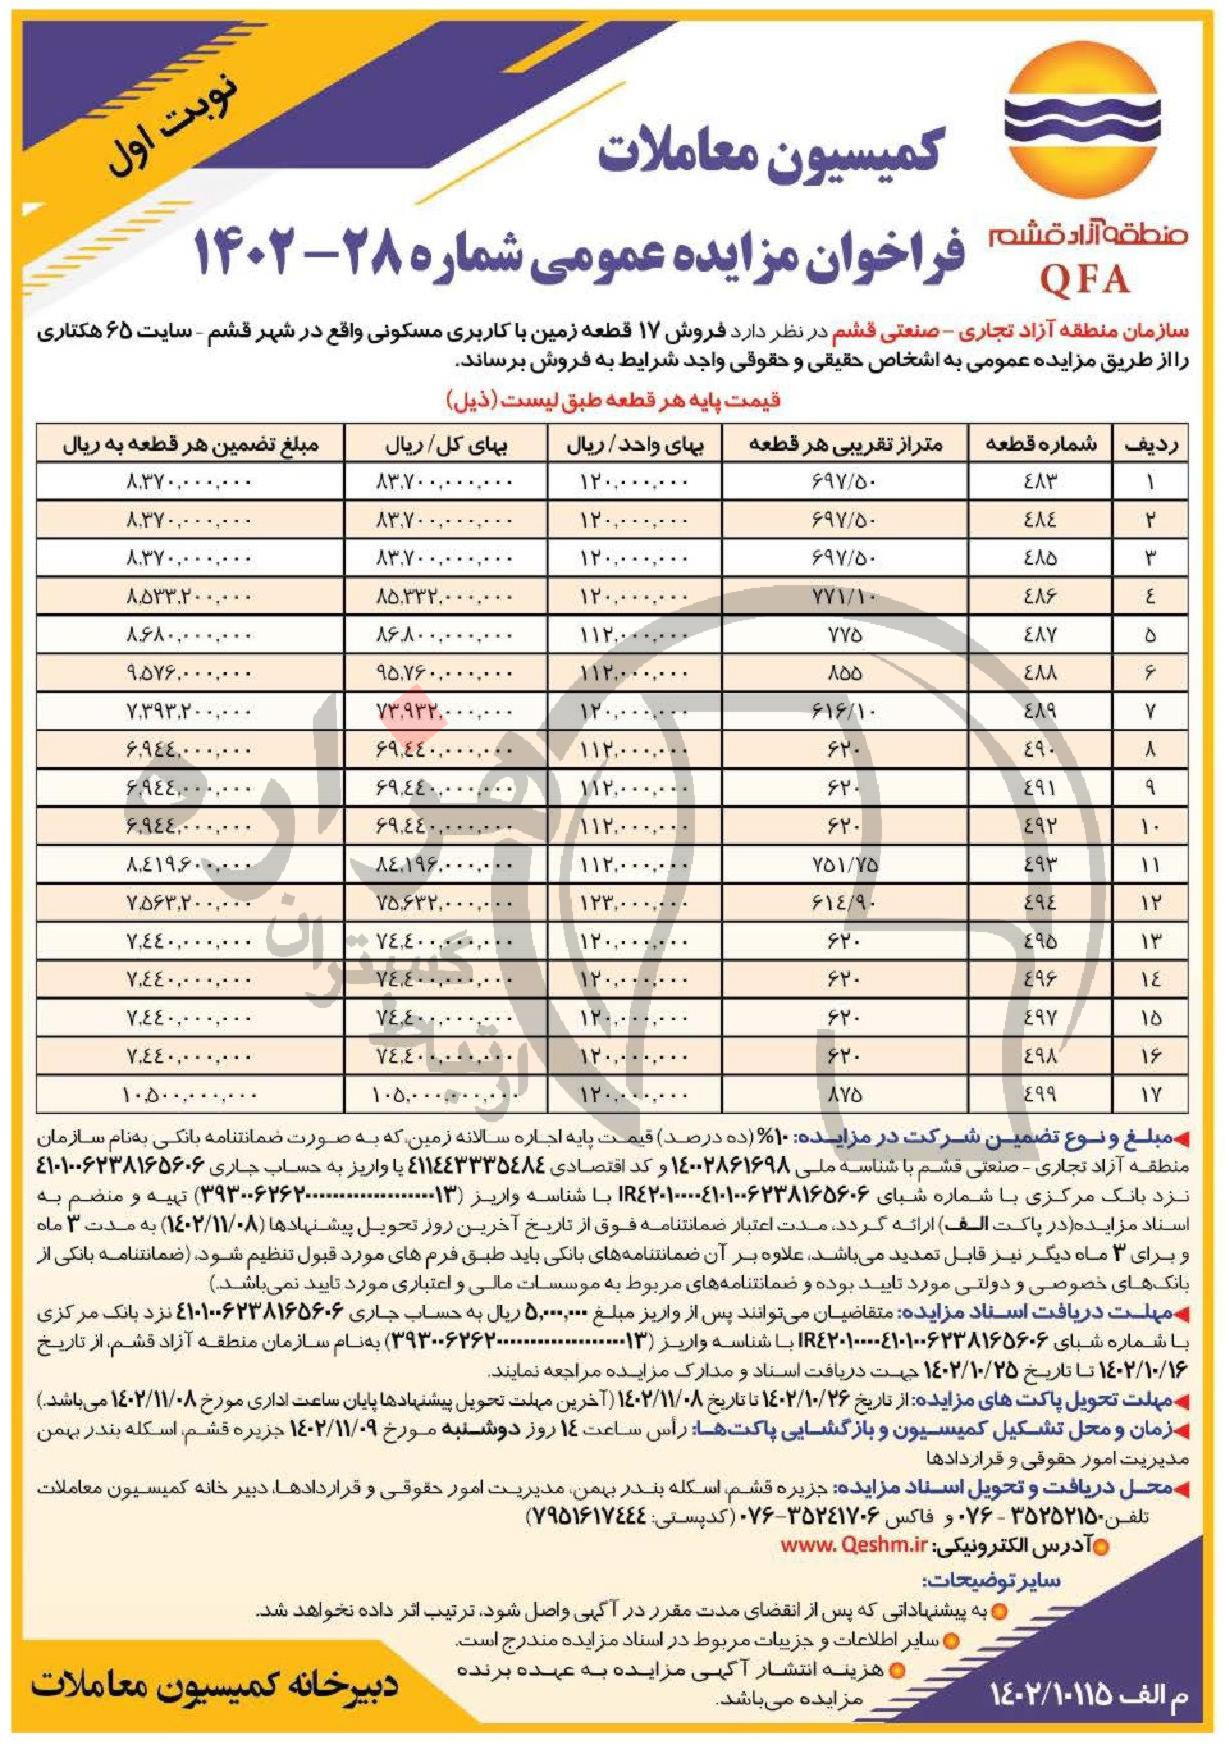 نوبت اول
کمیسیون معاملات
فراخوان مزایده عمومی شماره ۲۸ – ۱۴۰۲
منطقه آزاد قشم
QFA
سازمان منطقه آزاد تجاری – صنعتی قشم در نظر دارد فروش ۱۷ قطعه زمین با کاربری مسکونی واقع در شهر قشم - سایت ۶۵ هکتاری
را از طریق مزایده عمومی به اشخاص حقیقی و حقوقی واجد شرایط به فروش برساند.
قیمت پایه هر قطعه طبق لیست (ذیل)
ردیف شماره قطعه متراز تقریبی هر قطعه بهای واحد/ ریال بهای کل/ ریال مبلغ تضمین هر قطعه به ریال
۱ ۴۸۳ ۶۹۷/۵۰ ۱۲۰,۰۰۰,۰۰۰ ۸۳,۷۰۰,۰۰۰,۰۰۰ ۸,۳۷۰,۰۰۰,۰۰۰
۲ ۴۸۴ ۶۹۷/۵۰ ۱۲۰,۰۰۰,۰۰۰ ۸۳,۷۰۰,۰۰۰,۰۰۰ ۸,۳۷۰,۰۰۰,۰۰۰
۳ ۴۸۵ ۶۹۷/۵۰ ۱۲۰,۰۰۰,۰۰۰ ۸۳,۷۰۰,۰۰۰,۰۰۰ ۸,۳۷۰,۰۰۰,۰۰۰
۴ ۴۸۶ ۷۷۱/۱۰ ۱۲۰,۰۰۰,۰۰۰ ۸۵,۳۳۲,۰۰۰,۰۰۰ ۸,۵۳۳,۲۰۰,۰۰۰
۵ ۴۸۷ ۷۷۵ ۱۱۲,۰۰۰,۰۰۰ ۸۶,۸۰۰,۰۰۰,۰۰۰ ۸,۶۸۰,۰۰۰,۰۰۰
۶ ۴۸۸ ۸۵۵ ۱۱۲,۰۰۰,۰۰۰ ۹۵,۷۶۰,۰۰۰,۰۰۰ ۹,۵۷۶,۰۰۰,۰۰۰
۷ ۴۸۹ ۶۱۶/۱۰ ۱۲۰,۰۰۰,۰۰۰ ۷۳,۹۳۲,۰۰۰,۰۰۰ ۷,۳۹۳,۲۰۰,۰۰۰
۸ ۴۹۰ ۶۲۰ ۱۱۲,۰۰۰,۰۰۰ ۶۹,۴۴۰,۰۰۰,۰۰۰ ۶,۹۴۴,۰۰۰,۰۰۰
۹ ۴۹۱ ۶۲۰ ۱۱۲,۰۰۰,۰۰۰ ۶۹,۴۴۰,۰۰۰,۰۰۰ ۶,۹۴۴,۰۰۰,۰۰۰
۱۰ ۴۹۲ ۶۲۰ ۱۱۲,۰۰۰,۰۰۰ ۶۹,۴۴۰,۰۰۰,۰۰۰ ۶,۹۴۴,۰۰۰,۰۰۰
۱۱ ۴۹۳ ۷۵۱/۷۵ ۱۱۲,۰۰۰,۰۰۰ ۸۴,۱۹۶,۰۰۰,۰۰۰ ۸,۴۱۹,۶۰۰,۰۰۰
۱۲ ۴۹۴ ۶۱۴/۹۰ ۱۲۳,۰۰۰,۰۰۰ ۷۵,۶۳۲,۰۰۰,۰۰۰ ۷,۵۶۳,۲۰۰,۰۰۰
۱۳ ۴۹۵ ۶۲۰ ۱۲۰,۰۰۰,۰۰۰ ۷۴,۴۰۰,۰۰۰,۰۰۰ ۷,۴۴۰,۰۰۰,۰۰۰
۱۴ ۴۹۶ ۶۲۰ ۱۲۰,۰۰۰,۰۰۰ ۷۴,۴۰۰,۰۰۰,۰۰۰ ۷,۴۴۰,۰۰۰,۰۰۰
۱۵ ۴۹۷ ۶۲۰ ۱۲۰,۰۰۰,۰۰۰ ۷۴,۴۰۰,۰۰۰,۰۰۰ ۷,۴۴۰,۰۰۰,۰۰۰
۱۶ ۴۹۸ ۶۲۰ ۱۲۰,۰۰۰,۰۰۰ ۷۴,۴۰۰,۰۰۰,۰۰۰ ۷,۴۴۰,۰۰۰,۰۰۰
۱۷ ۴۹۹ ۸۷۵ ۱۲۰,۰۰۰,۰۰۰ ۱۰۵,۰۰۰,۰۰۰,۰۰۰ ۱۰,۵۰۰,۰۰۰,۰۰۰
هزاره
ارتباط گستران
◀مبلغ و نوع تضمین شرکت در مزایده: ۱۰%(ده درصد) قیمت پایه اجاره سالانه زمین، که به صورت ضمانتنامه بانکی به‌نام سازمان
منطقه آزاد تجاری - صنعتی قشم با شناسه ملی ۱۴۰۰۲۸۶۱۶۹۸ و کد اقتصادی ۴۱۱۴۴۳۳۳۵۴۸۴ یا واریز به حساب جاری ۴۱۰۱۰۰۶۲۳۸۱۶۵۶۰۶
نزد بانک مرکزی با شماره شبای IR۴۲۰۱۰۰۰۰۴۱۰۱۰۰۶۲۳۸۱۶۵۶۰۶ با شناسه واریز تهیه و منضم به
اسناد مزایده(در پاکت الف) ارائه گردد، مدت اعتبار ضمانتنامه فوق از تاریخ آخرین روز تحویل پیشنهادها (۱۴۰۲/۱۱/۰۸) به مدت ۳ ماه
و برای ۳ ماه دیگر نیز قابل تمدید می‌باشد، علاوه بر آن ضمانتنامه‌های بانکی باید طبق فرم های مورد قبول تنظیم شود، (ضمانتنامه بانکی از
بانک‌های خصوصی و دولتی مورد تایید بوده و ضمانتنامه‌های مربوط به موسسات مالی و اعتباری مورد تایید نمی‌باشد.)
◀مهلت دریافت اسناد مزایده: متقاضیان می‌توانند پس از واریز مبلغ ۵,۰۰۰,۰۰۰ ریال به حساب جاری ۴۱۰۱۰۰۶۲۳۸۱۶۵۶۰۶ نزد بانک مرکزی
با شماره شبای IR۴۲۰۱۰۰۰۰۴۱۰۱۰۰۶۲۳۸۱۶۵۶۰۶ با شناسه واریز به‌نام سازمان منطقه آزاد قشم، از تاریخ
۱۴۰۲/۱۰/۱۶ تا تاریخ ۱۴۰۲/۱۰/۲۵ جهت دریافت اسناد و مدارک مزایده مراجعه نمایند.
◀مهلت تحویل پاکت های مزایده: از تاریخ ۱۴۰۲/۱۰/۲۶ تا تاریخ ۱۴۰۲/۱۱/۰۸ (آخرین مهلت تحویل پیشنهادها پایان ساعت اداری مورخ ۱۴۰۲/۱۱/۰۸ می‌باشد.)
◀زمان و محل تشکیل کمیسیون و بازگشایی پاکت‌ها: رأس ساعت ۱۴ روز دوشنبه مورخ ۱۴۰۲/۱۱/۰۹ جزیره قشم، اسکله بندر بهمن
مدیریت امور حقوقی و قراردادها
◀محل دریافت و تحویل اسناد مزایده: جزیره قشم، اسکله بندر بهمن، مدیریت امور حقوقی و قراردادها، دبیر خانه کمیسیون معاملات
تلفن: ۳۵۲۵۲۱۵۰ - ۰۷۶ و فاکس ۳۵۲۴۱۷۰۶-۰۷۶ (کدپستی: ۷۹۵۱۶۱۷۴۴۴)
آدرس الکترونیکی: www. Qeshm.ir
سایر توضیحات:
به پیشنهاداتی که پس از انقضای مدت مقرر در آگهی واصل شود، ترتیب اثر داده نخواهد شد.
سایر اطلاعات و جزییات مربوط در اسناد مزایده مندرج است.
هزینه انتشار آگهی مزایده به عهده برنده
مزایده می‌باشد.
دبیرخانه کمیسیون معاملات
م الف ۱۴۰۲/۱۰۱۱۵